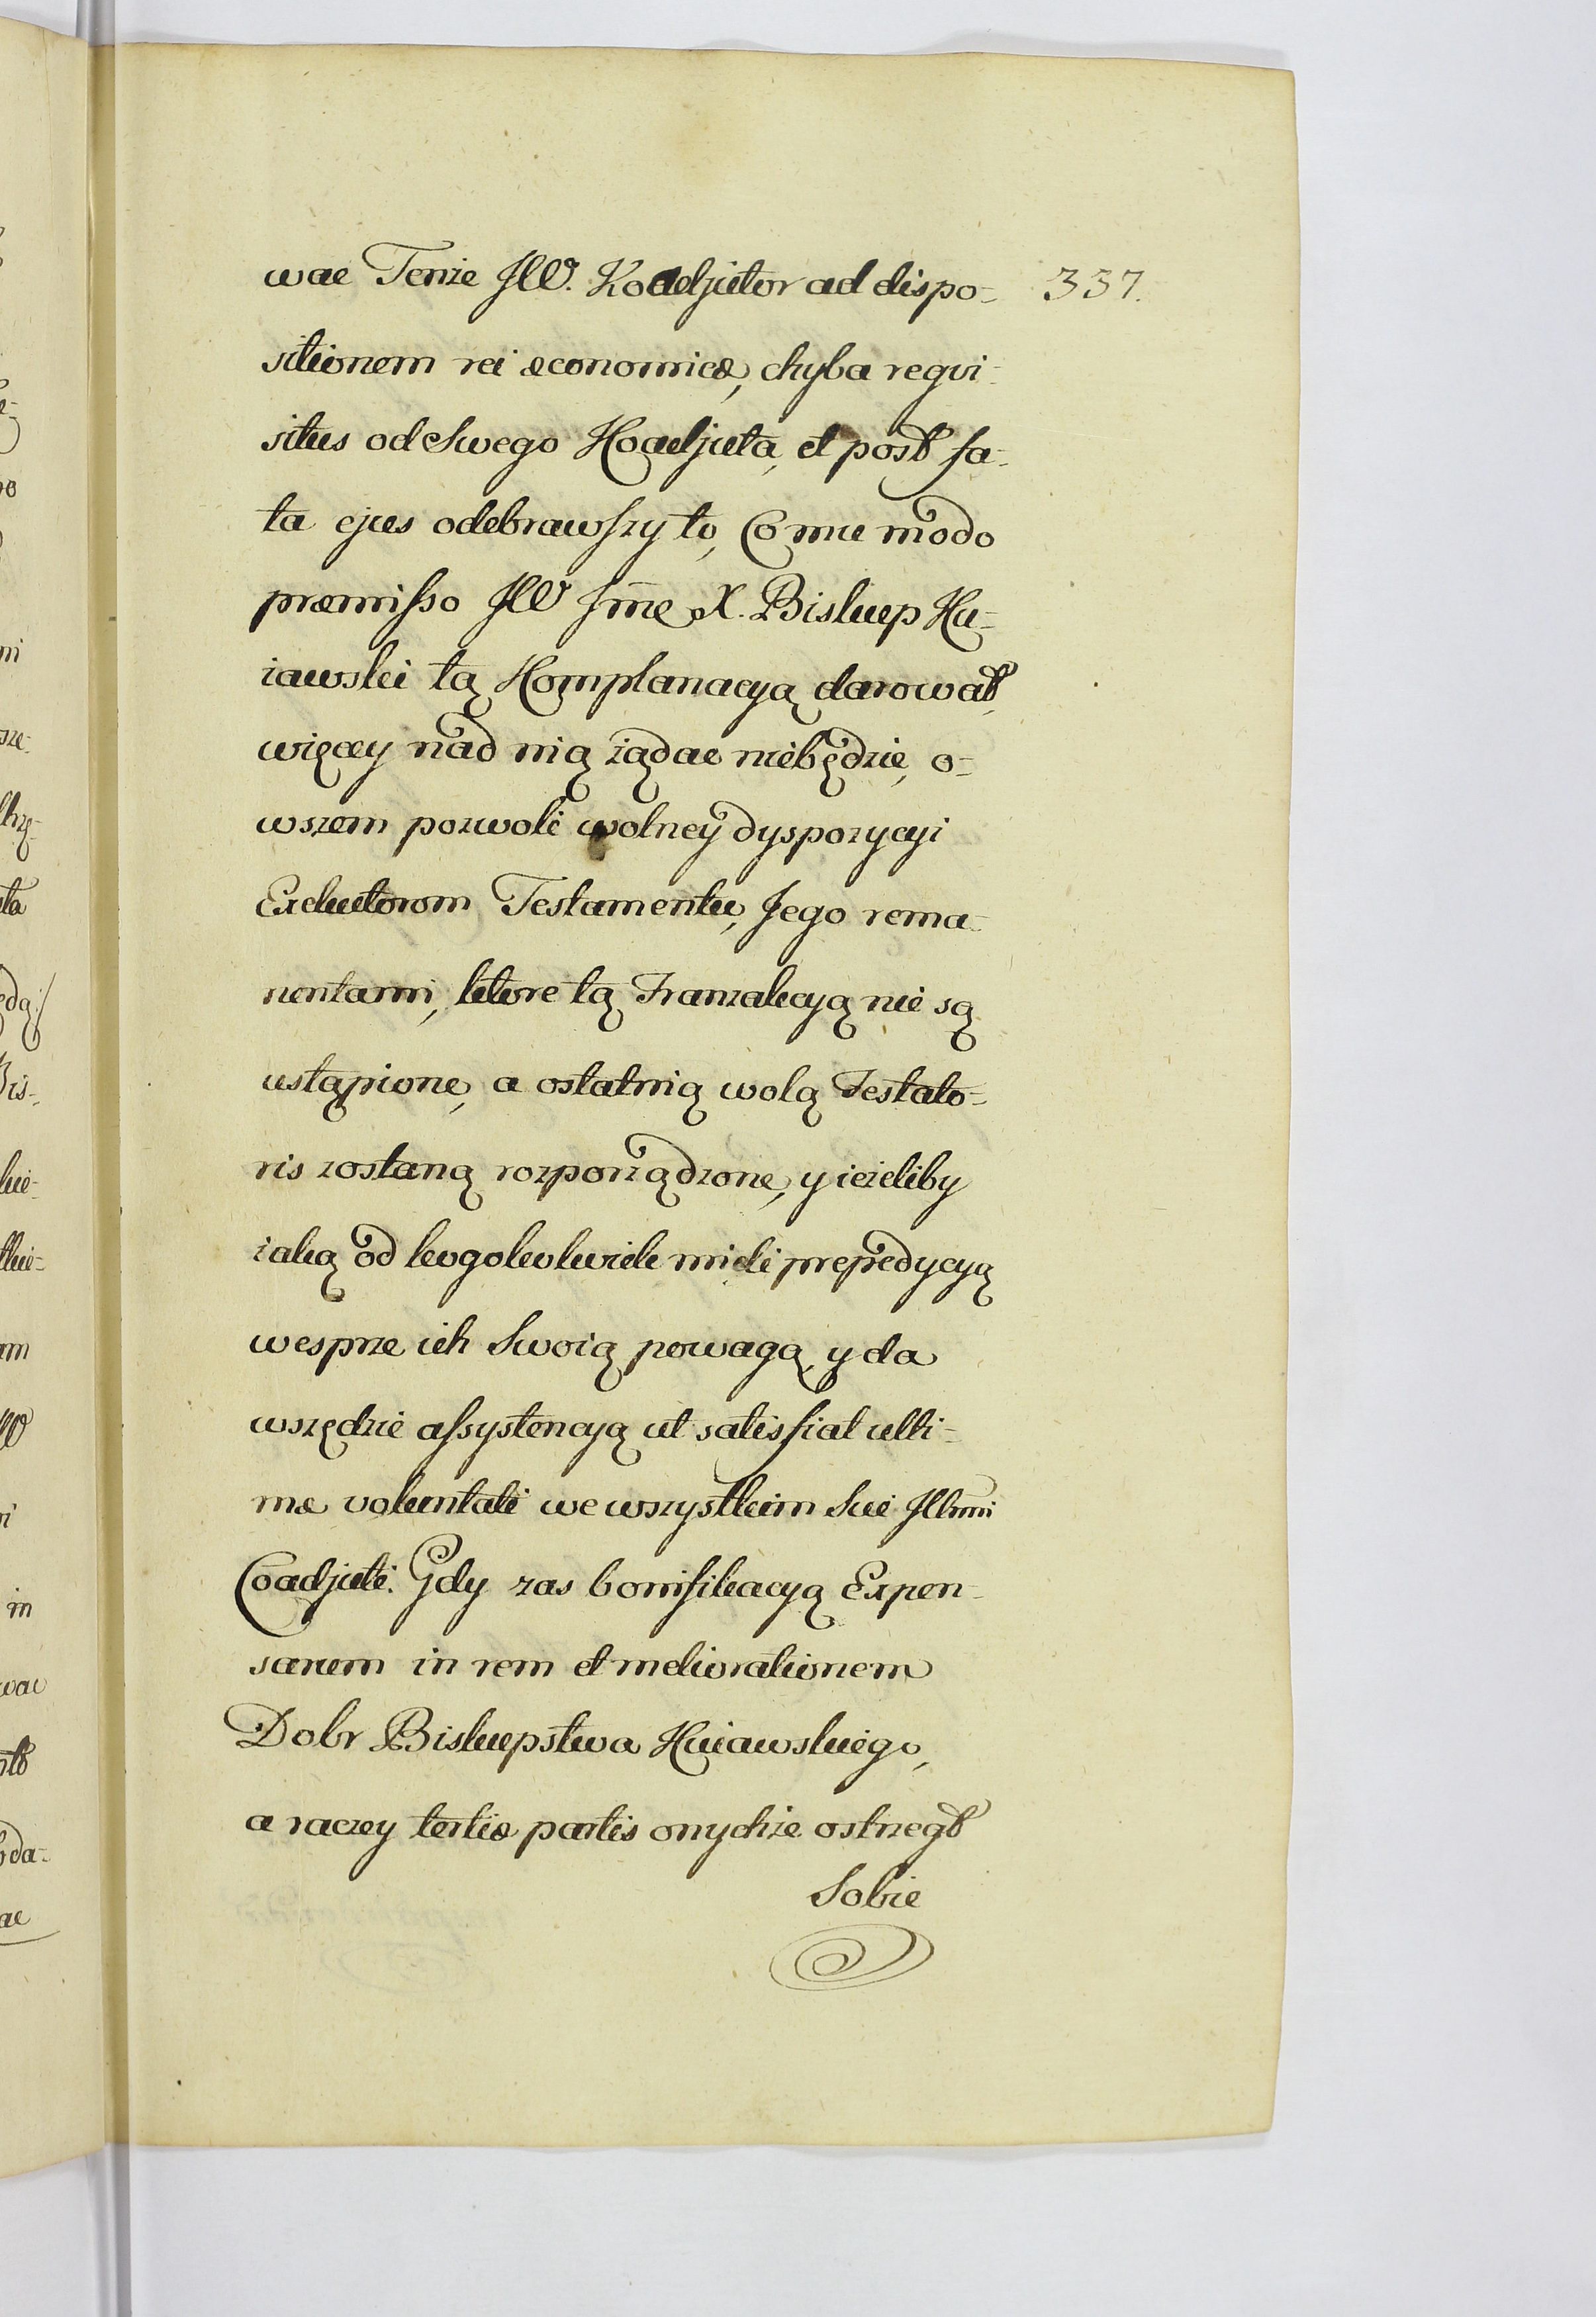 wac Tenże JW. Koadjutor ad dispo- 337.
sitionem rei œconomicæ, chyba reqvi-
situs od Swego Koadjuta, et post fa-
ta ejus odebrawszy to, Co mu modo
præmisso JW Jmć X. Biskup Ku-
iawski tą Komplanacyą darował,
więcey nad nią żądac niebędzie, o-
wszem pozwoli wolney dyspozycyi
Exekutorom Testamentu, Jego rema-
nentami, ktore tą Tranzakcyą nie są
ustąpione, a ostatnią wolą Testato-
ris zostaną rozporządzone, y ieżeliby
iaką od kogokolwiek mieli prepedycyą
wesprze ich Swoią powagą, y da
wszędzie assystencyą ut satisfiat ulti-
mæ voluntati we wszystkim Sui Jllmi
Coadjuti. Gdy zas bonifikacyą Expen-
sarum in rem et meliorationem
Dobr Biskupstwa Kuiawskiego,
a raczey tertiæ partis onychże ostrzegł
Sobie